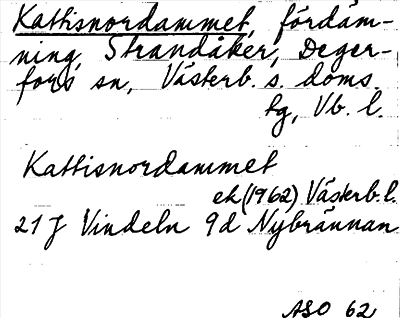 Kattisnordammet, fördäm-
ning, Strandåker, Deger-
fors sn, Västerb. s. doms.
tg, Vb. l.
Kattisnordammet
ek (1962) Västerb. l.
21 J Vindeln 9d Nybrännan
ASO 62